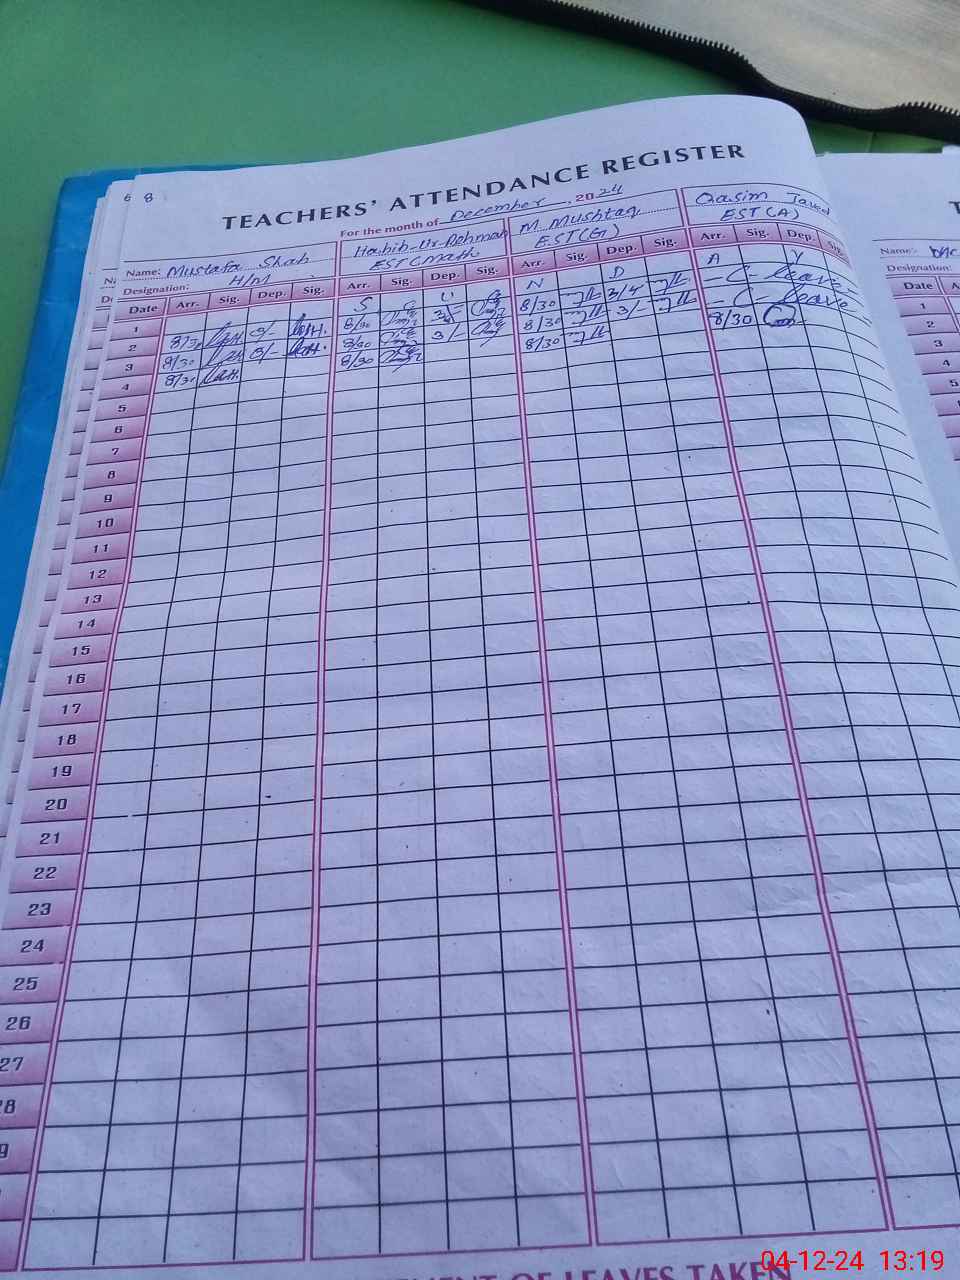 6 8
TEACHERS' ATTENDANCE REGISTER
For the month of December . 2024
Name: Mustafa Shah Habib-Ur-Rehman M. Mushtaq Qasim Javed
Designation: H/M EST(Math) EST(G) EST(A)
Date Arr. Sig. Dep. Sig. Arr. Sig. Dep. Sig. Arr. Sig. Dep. Sig. Arr. Sig. Dep. Sig.
1 S U N D A Y
2 8/30 3/- 8/30 8/30 - C - leave -
3 8/30 3/- 8/30 3/- 8/30 3/- - C - leave -
4 8/30 8/30 8/30 8/30
5
6
7
8
9
10
11
12
13
14
15
16
17
18
19
20
21
22
23
24
25
26
27
28
9
OF LEAVES TAKEN
Name:
Designation:
Date A
1
2
3
4
5
04-12-24 13:19